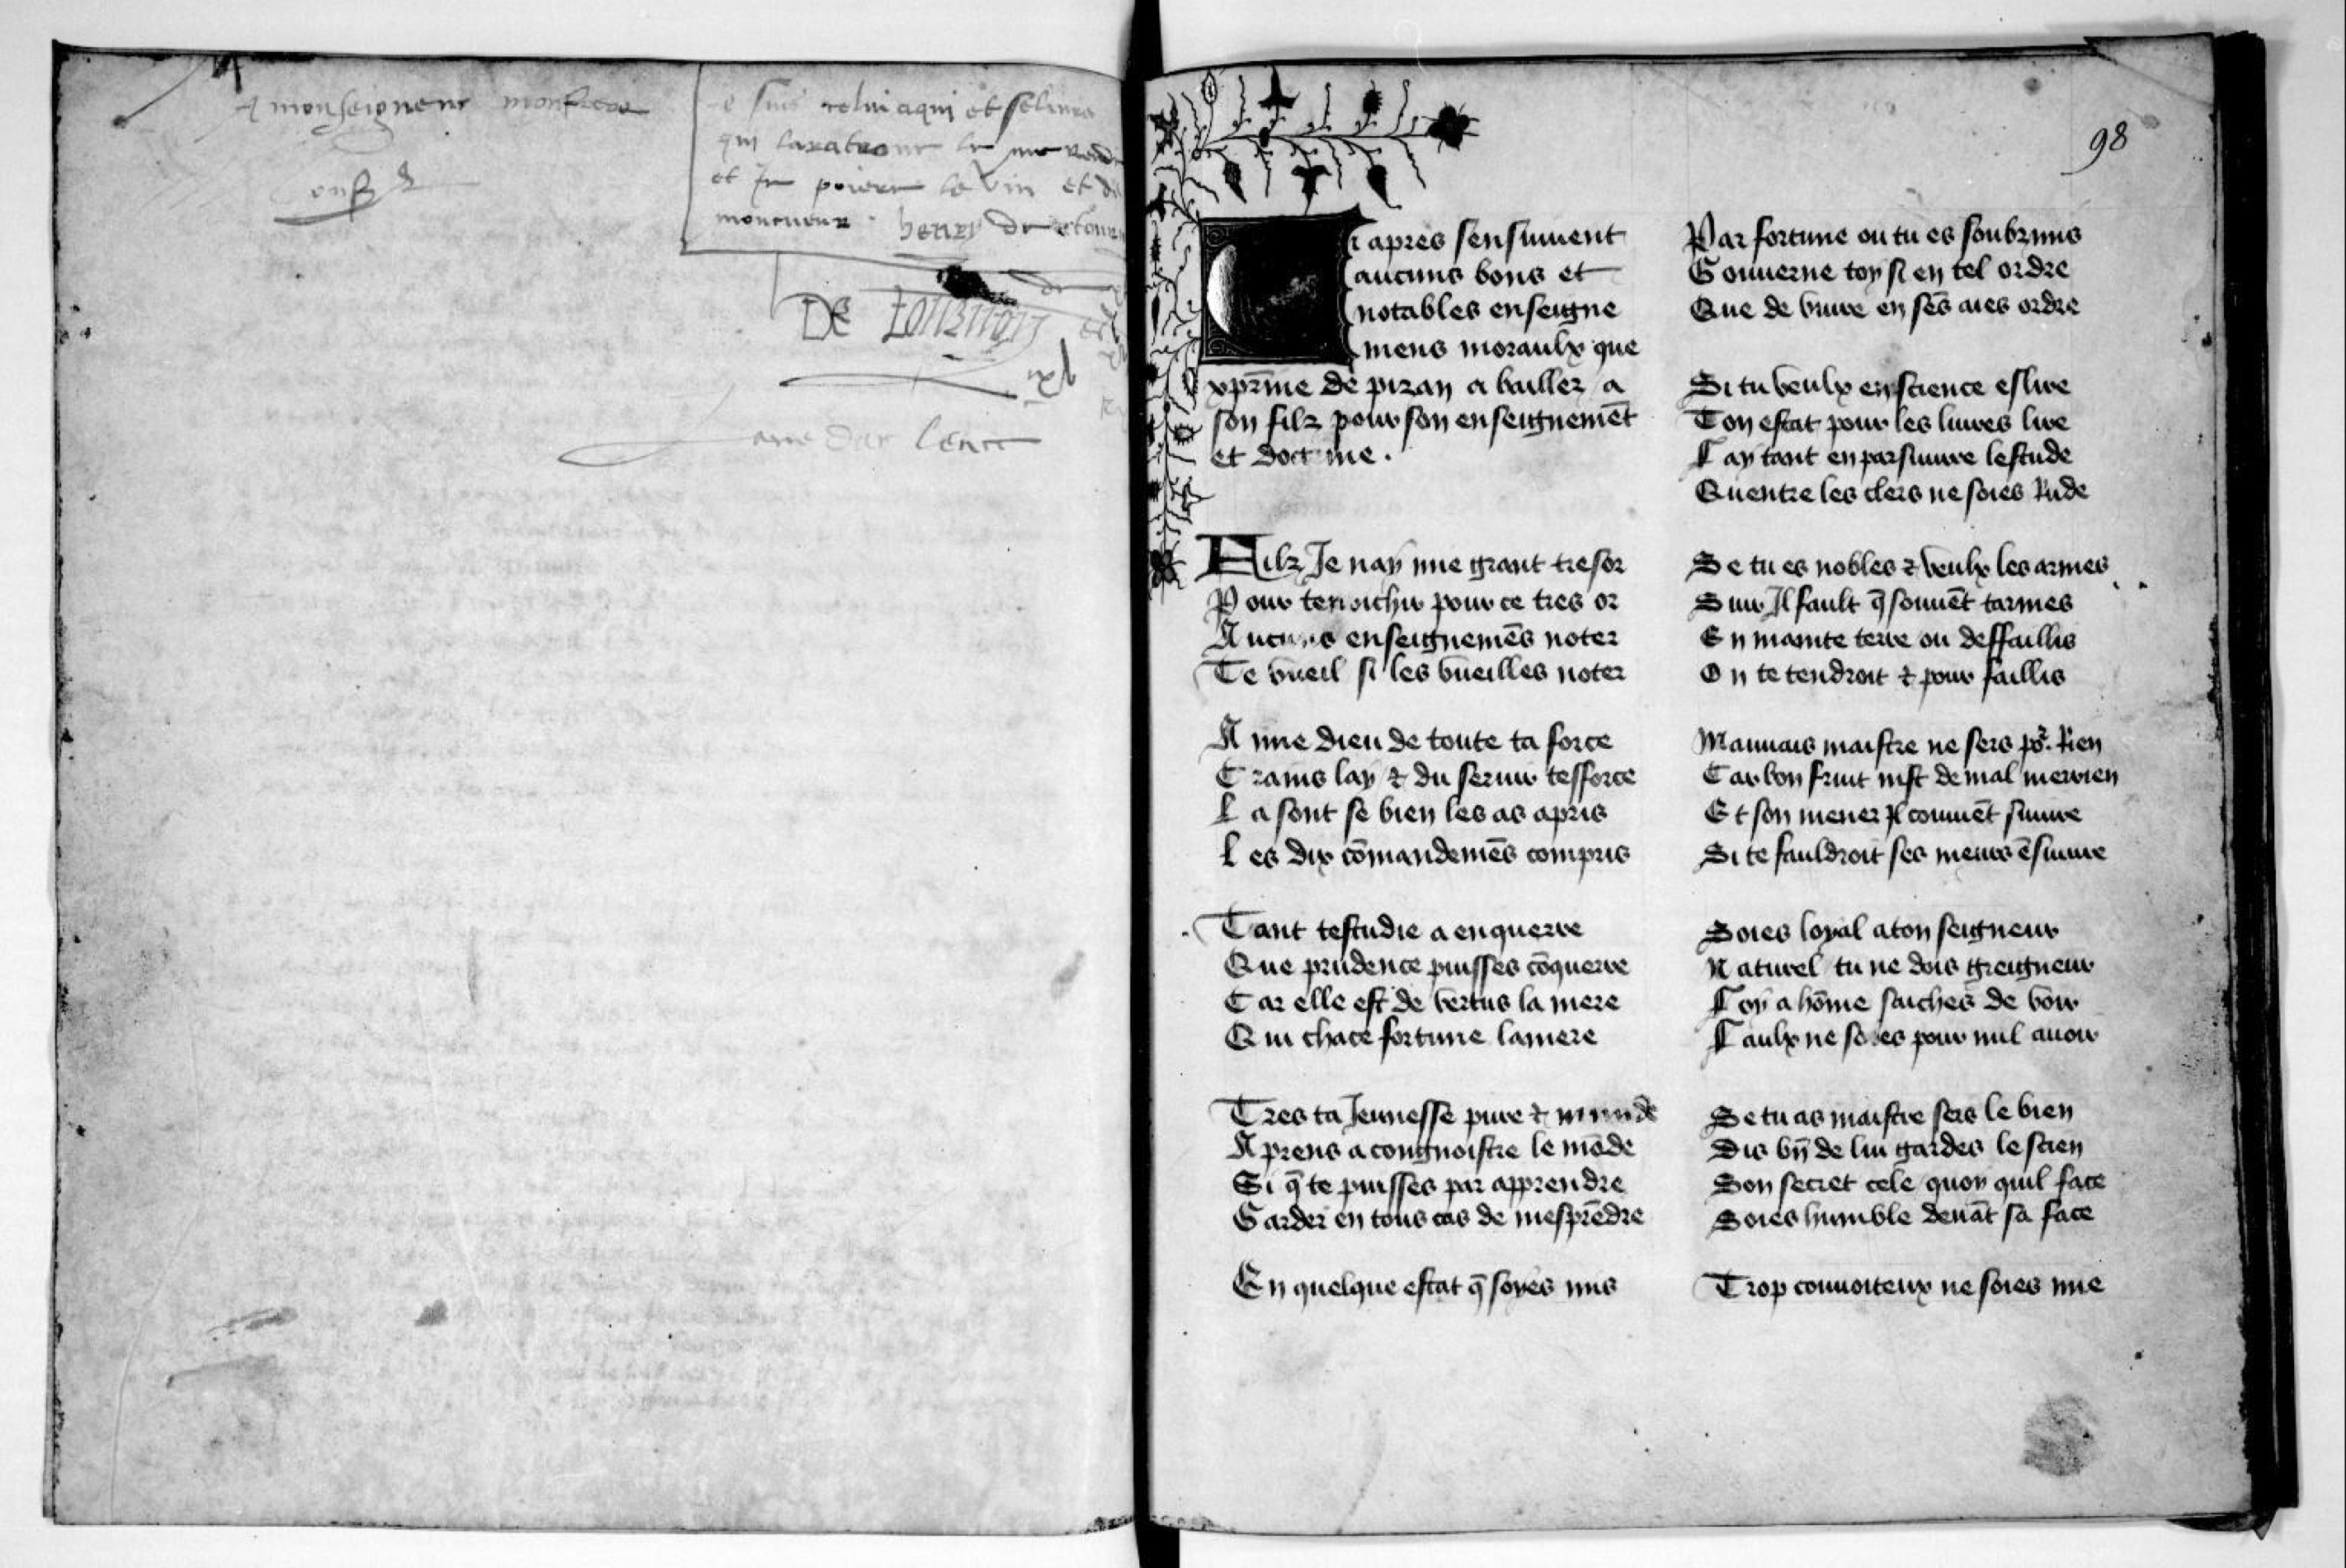 A monseigneur monfrere
Je suis celui aqui est se livre
qui la
et je le vin et
moncueur henry de
De
98
Ci apres sensuiuent
aucuns bons et
notables enseigne
mens moraulx que
xpr̄ine de pizan a bailler a
son filz pour son enseignemēt
et doctrine .
Filz Je nay mie grant tresor
Pour tenrichir pour ce tres or
Aucuns enseignemēs noter
Te vueil si les vueilles noter
Aime dieu de toute ta force
Crains lay ⁊ du seruir tesforce
La sont se bien les as apris
Les dix cōmandemēs compris
Tant testudie a enquerre
Que prudence puisses cōquerre
Car elle est de vertus la mere
Qui chace fortune lamere
Tres ta Jeunesse pure ⁊ munde
Aprens a congnoistre le mōde
Si q̄ te puisses par apprendre
Garder en tous cas de mesprēdre
En quelque estat q̄ soyes mis
Par fortune ou tu es soubzmis
Gouuerne toy si en tel ordre
Que de viure en sēs aies ordre
Si tu veulx en science eslire
Ton estat pour les liures lire
Fay tant en parsuiure lestude
Quentre les clers ne soies Rude
Se tu es nobles ⁊ veulx les armes
Suir Il fault q̄ souuēt tarmes
En mainte terre ou deffaillis
On te tendroit ⁊ pour faillis
Mauuais maistre ne sers po͛. Rien
Car bon fruit nist de mal merrien
Et son mener Il conuiēt suiure
Si te fauldroit ses meurs ēsuiure
Soies loyal a ton seigneur
Naturel tu ne dois greigneur
Foy a hōme saiches de voir
Faulx ne soies pour nul auoir
Se tu as maistre sers le bien
Dis bn̄ de lui gardes le scien
Son secret cele quoy quil face
Soies humble deuāt sa face
Trop conuoiteux ne soies mie